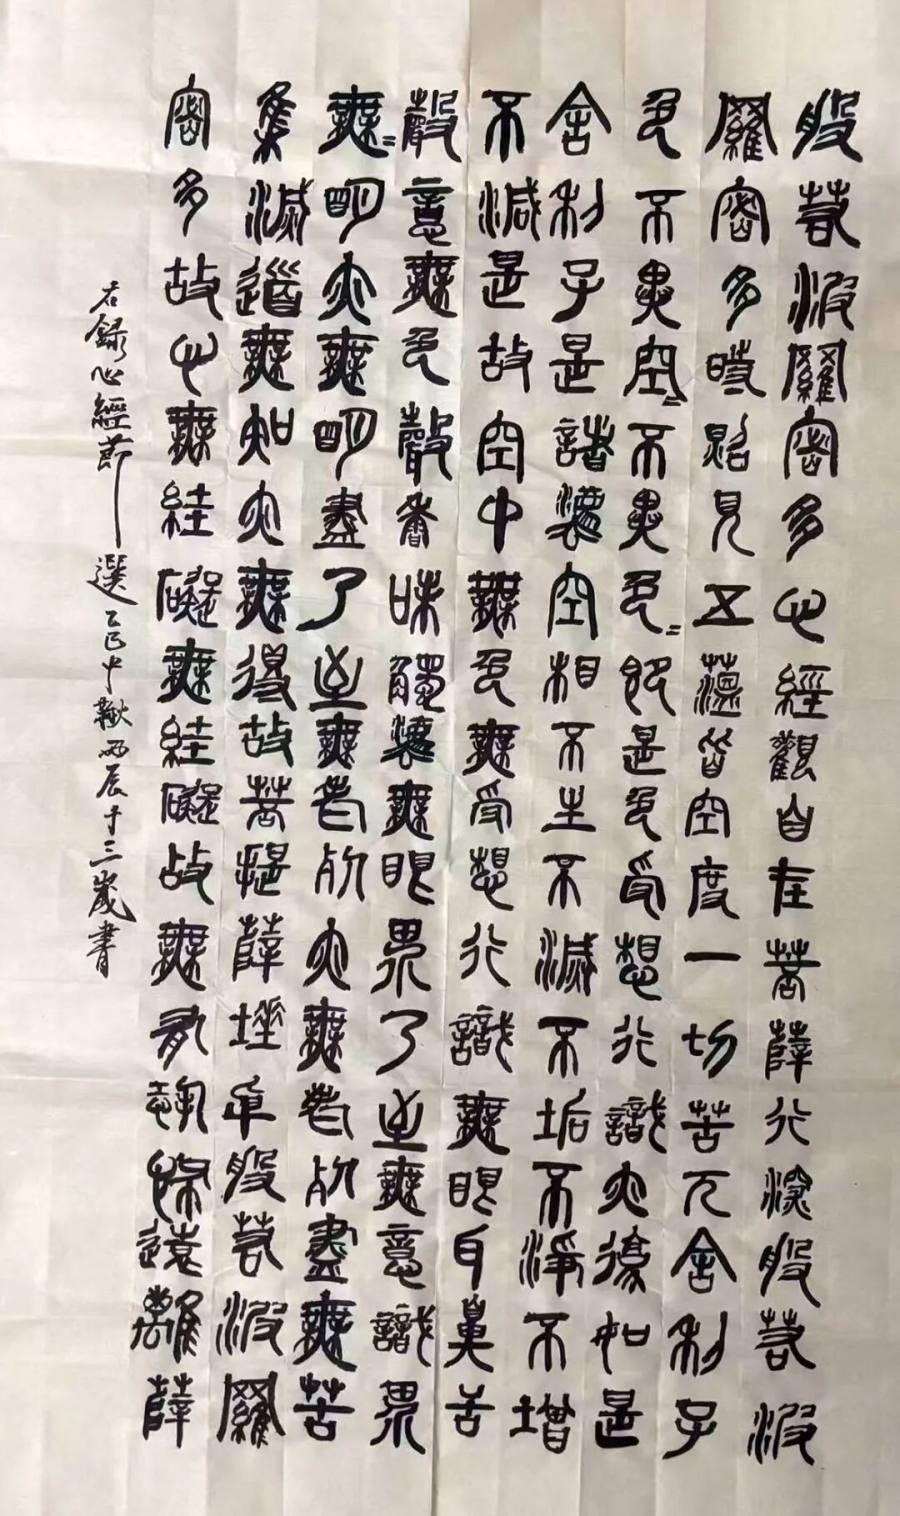 般若波羅密多心經觀自在菩薩行深般若波
羅密多時照見五蘊皆空度一切苦厄舍利子
色不異空〻不異色〻即是色受想行識亦復如是
舍利子是諸法空相不生不滅不垢不淨不增
不減是故空中無色無受想行識無眼耳鼻舌
聲意無色聲香味觸法無眼界乃至無意識界
無〻明亦無明盡乃至無老死亦無老死盡無苦
集滅道無知亦無得故菩提薩埵般若波羅
密多故心無絓礙無絓礙故無有怖遠離薩
右錄心經節選乙巳中秋辰十三歲書